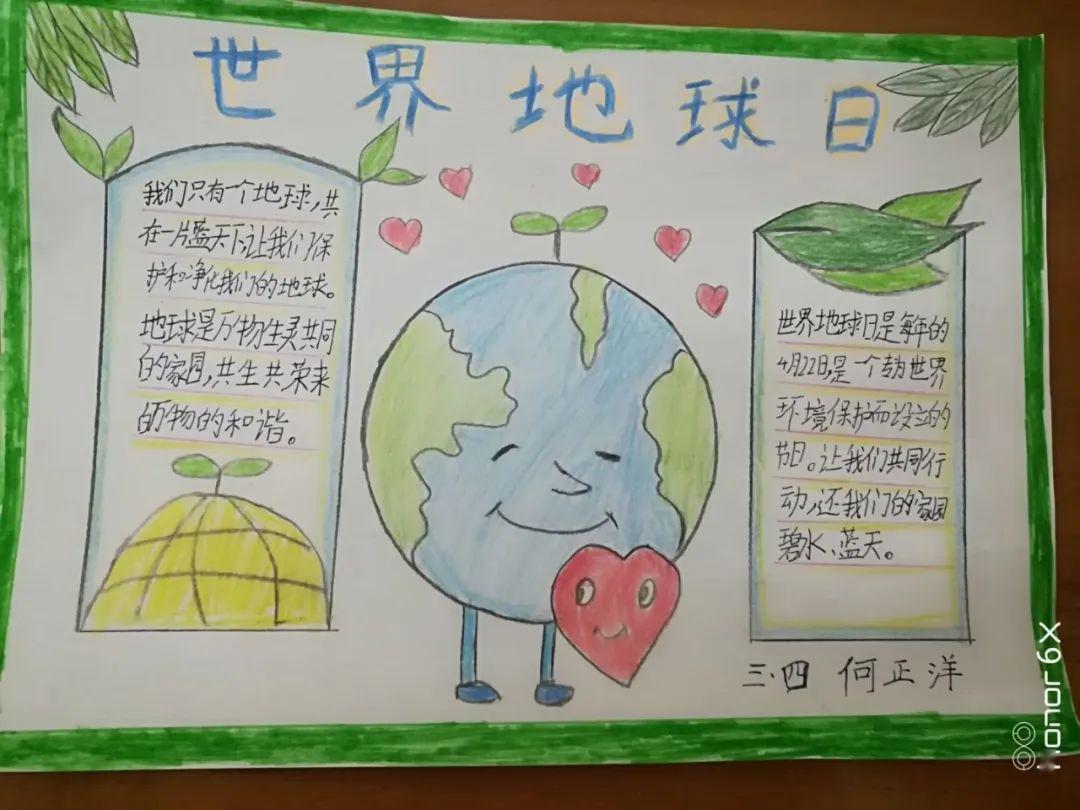 世界地球日
我们只有一个地球,共
在一片蓝天下,让我们保
护和净化我们的地球。
地球是万物生灵共同
的家园,共生共荣来
的万物的和谐。
世界地球日是每年的
4月22日,是一个专为世界
环境保护而设立的
节日。让我们共同行
动,还我们的家园
碧水、蓝天。
三·四 何正洋
honor 6X